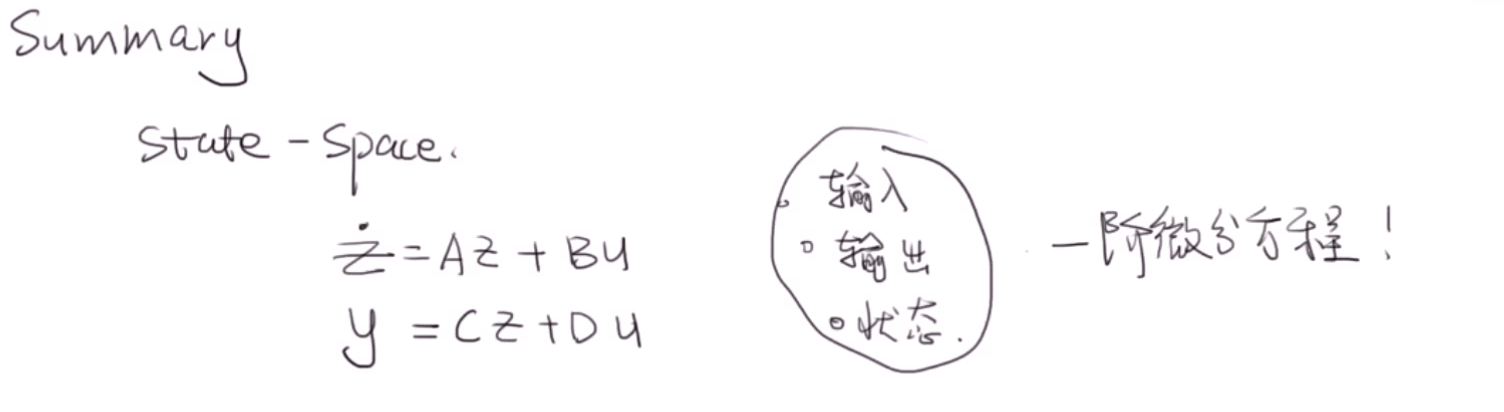 Summary
State-Space.
ż=Az+Bu
y=Cz+Du
输入
输出
状态.
一阶微分方程!